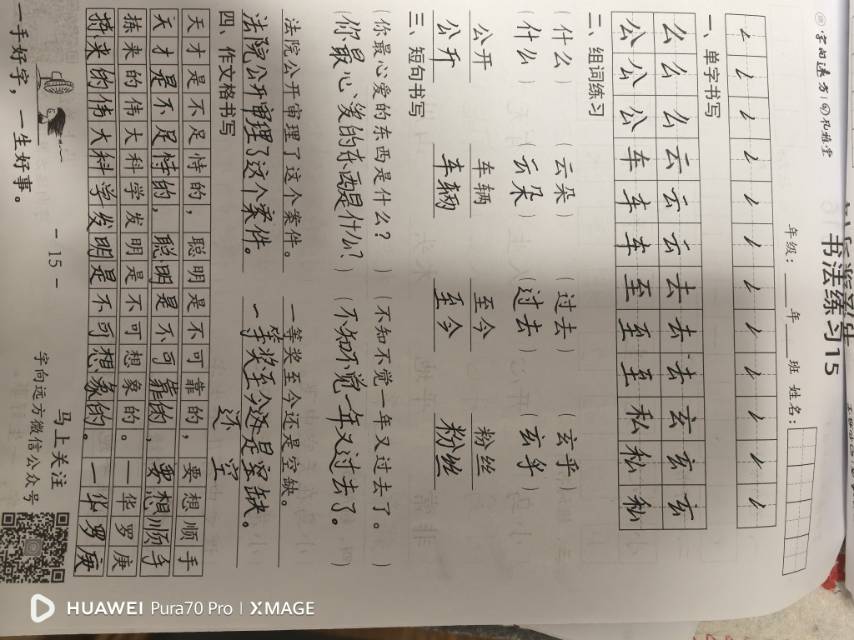 字向远方
书法练习15
年级：____年____班 姓名：
一、单字书写
么么么云云云去去去玄玄玄
公公公车车车至至至私私私
二、组词练习
（什么）（云朵）（过去）（玄乎）
（什么）（云朵）（过去）（玄乎）
公开 车辆 至今 粉丝
公开 车辆 至今 粉丝
三、短句书写
（你最心爱的东西是什么？）（不知不觉一年又过去了。）
（你最心爱的东西是什么？）（不知不觉一年又过去了。）
法院公开审理了这个案件。 一等奖至今还是空缺。
法院公开审理了这个案件。 一等奖至今还是空缺。
还 空
四、作文格书写
天才是不足恃的，聪明是不可靠的，要想顺手
天才是不足恃的，聪明是不可靠的，要想顺手
拣来的伟大科学发明是不可想象的。一华罗庚
拣来的伟大科学发明是不可想象的。一华罗庚
马上关注
字向远方微信公众号
一手好字，一生好事。
- 15 -
HUAWEI Pura70 Pro | XMAGE